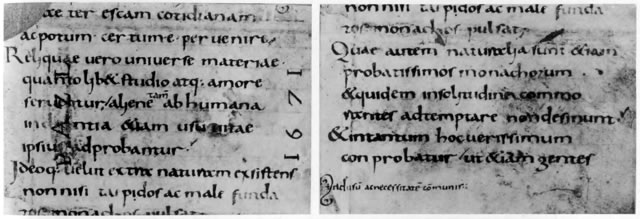 ac potum · certum e · pervenire
Reliquae vero universe materiae
quanto lib& studio atq: amore
aliene tam ab humana
&iam usu vitae
ipsius adprobantur
Ideoq: velut extra naturam existens
non nisi tepidos ac male funda
tos monachos pulsat
1671
non nisi tepidos ac male funda
tos monachos pulsat
Quae autem naturalia sunt &iam
probatissimos monachorum
& quidem in solitudine commo
rantes adtemptare non desinunt
& in tantum hoc verissimum
con probatur ut &iam gentes